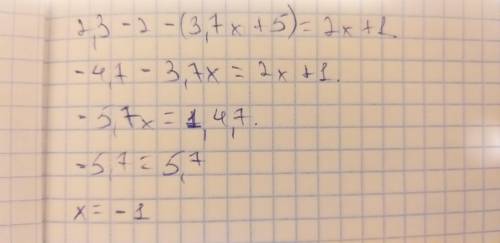 2,3 - 2 - (3,7x + 5) = 2x + 1.
-4,7 - 3,7x = 2x + 1.
-5,7x = 1,4,7.
-5,7 = 5,7
x = -1